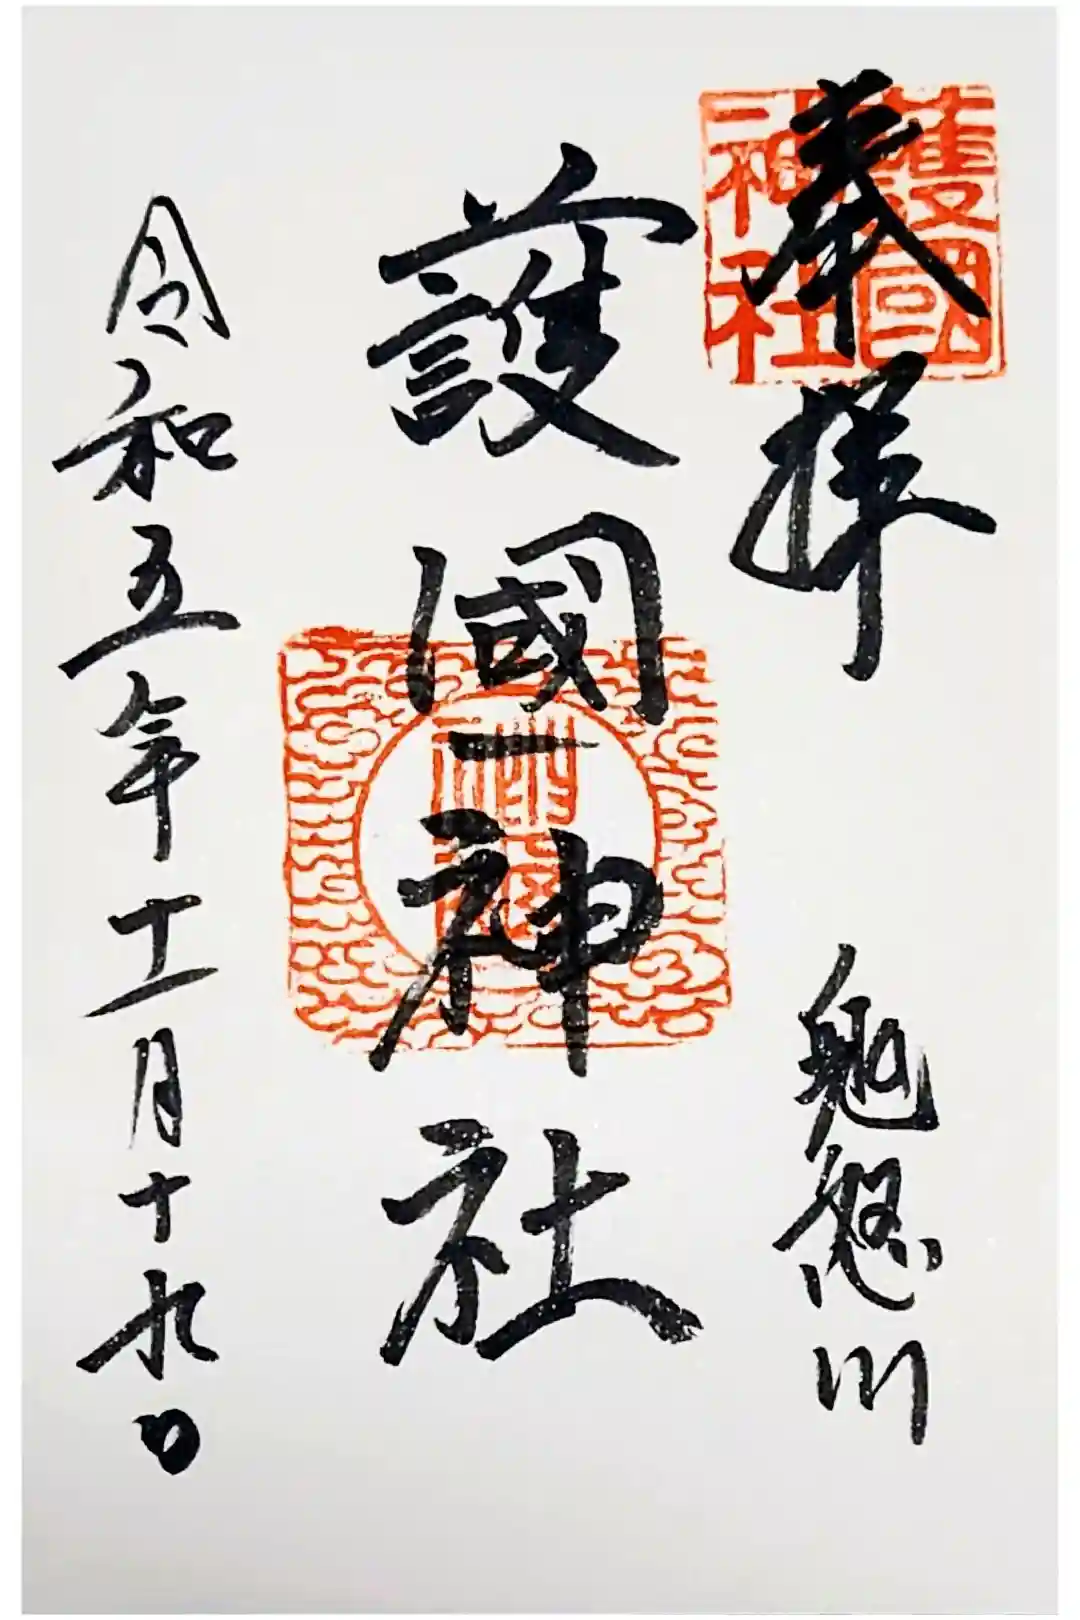 奉拝
護國神社
鬼怒川
護國神社
令和五年十二月十九日